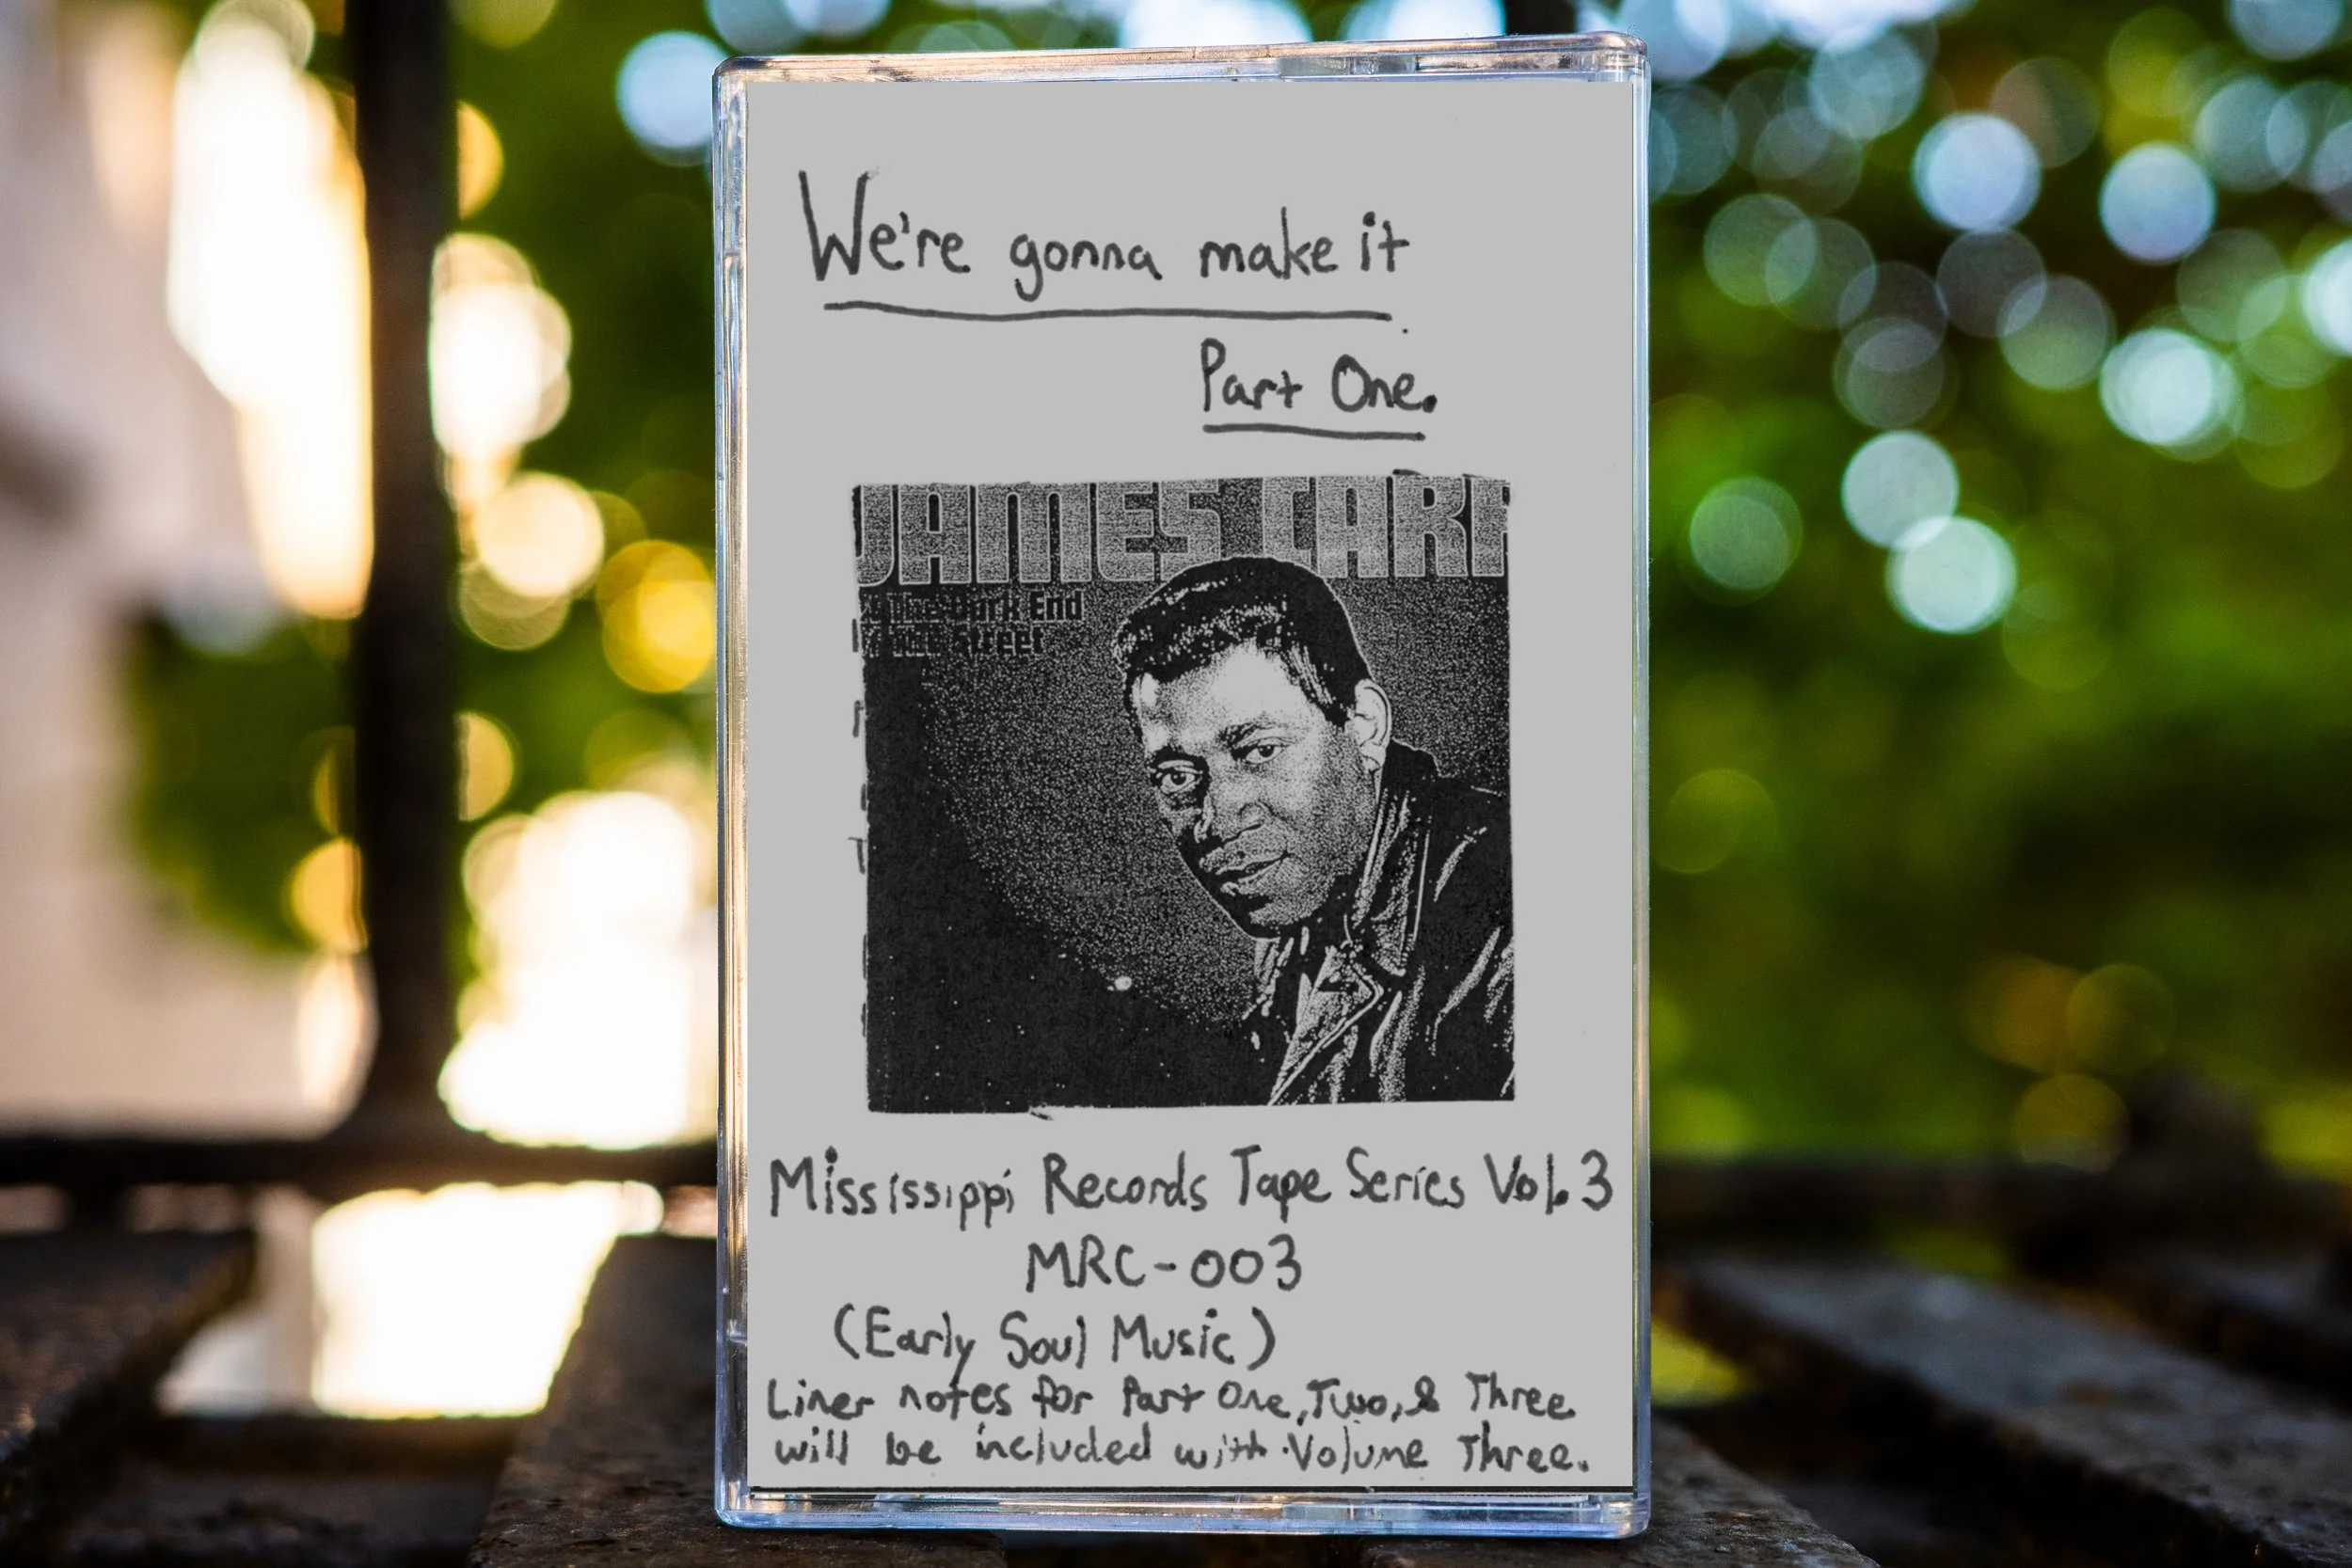 We're gonna make it
Part One.
JAMES CARR
The Dark End
The Street
Mississippi Records Tape Series Vol. 3
MRC-003
(Early Soul Music)
Liner notes for Part One, Two, & Three
will be included with Volume Three.